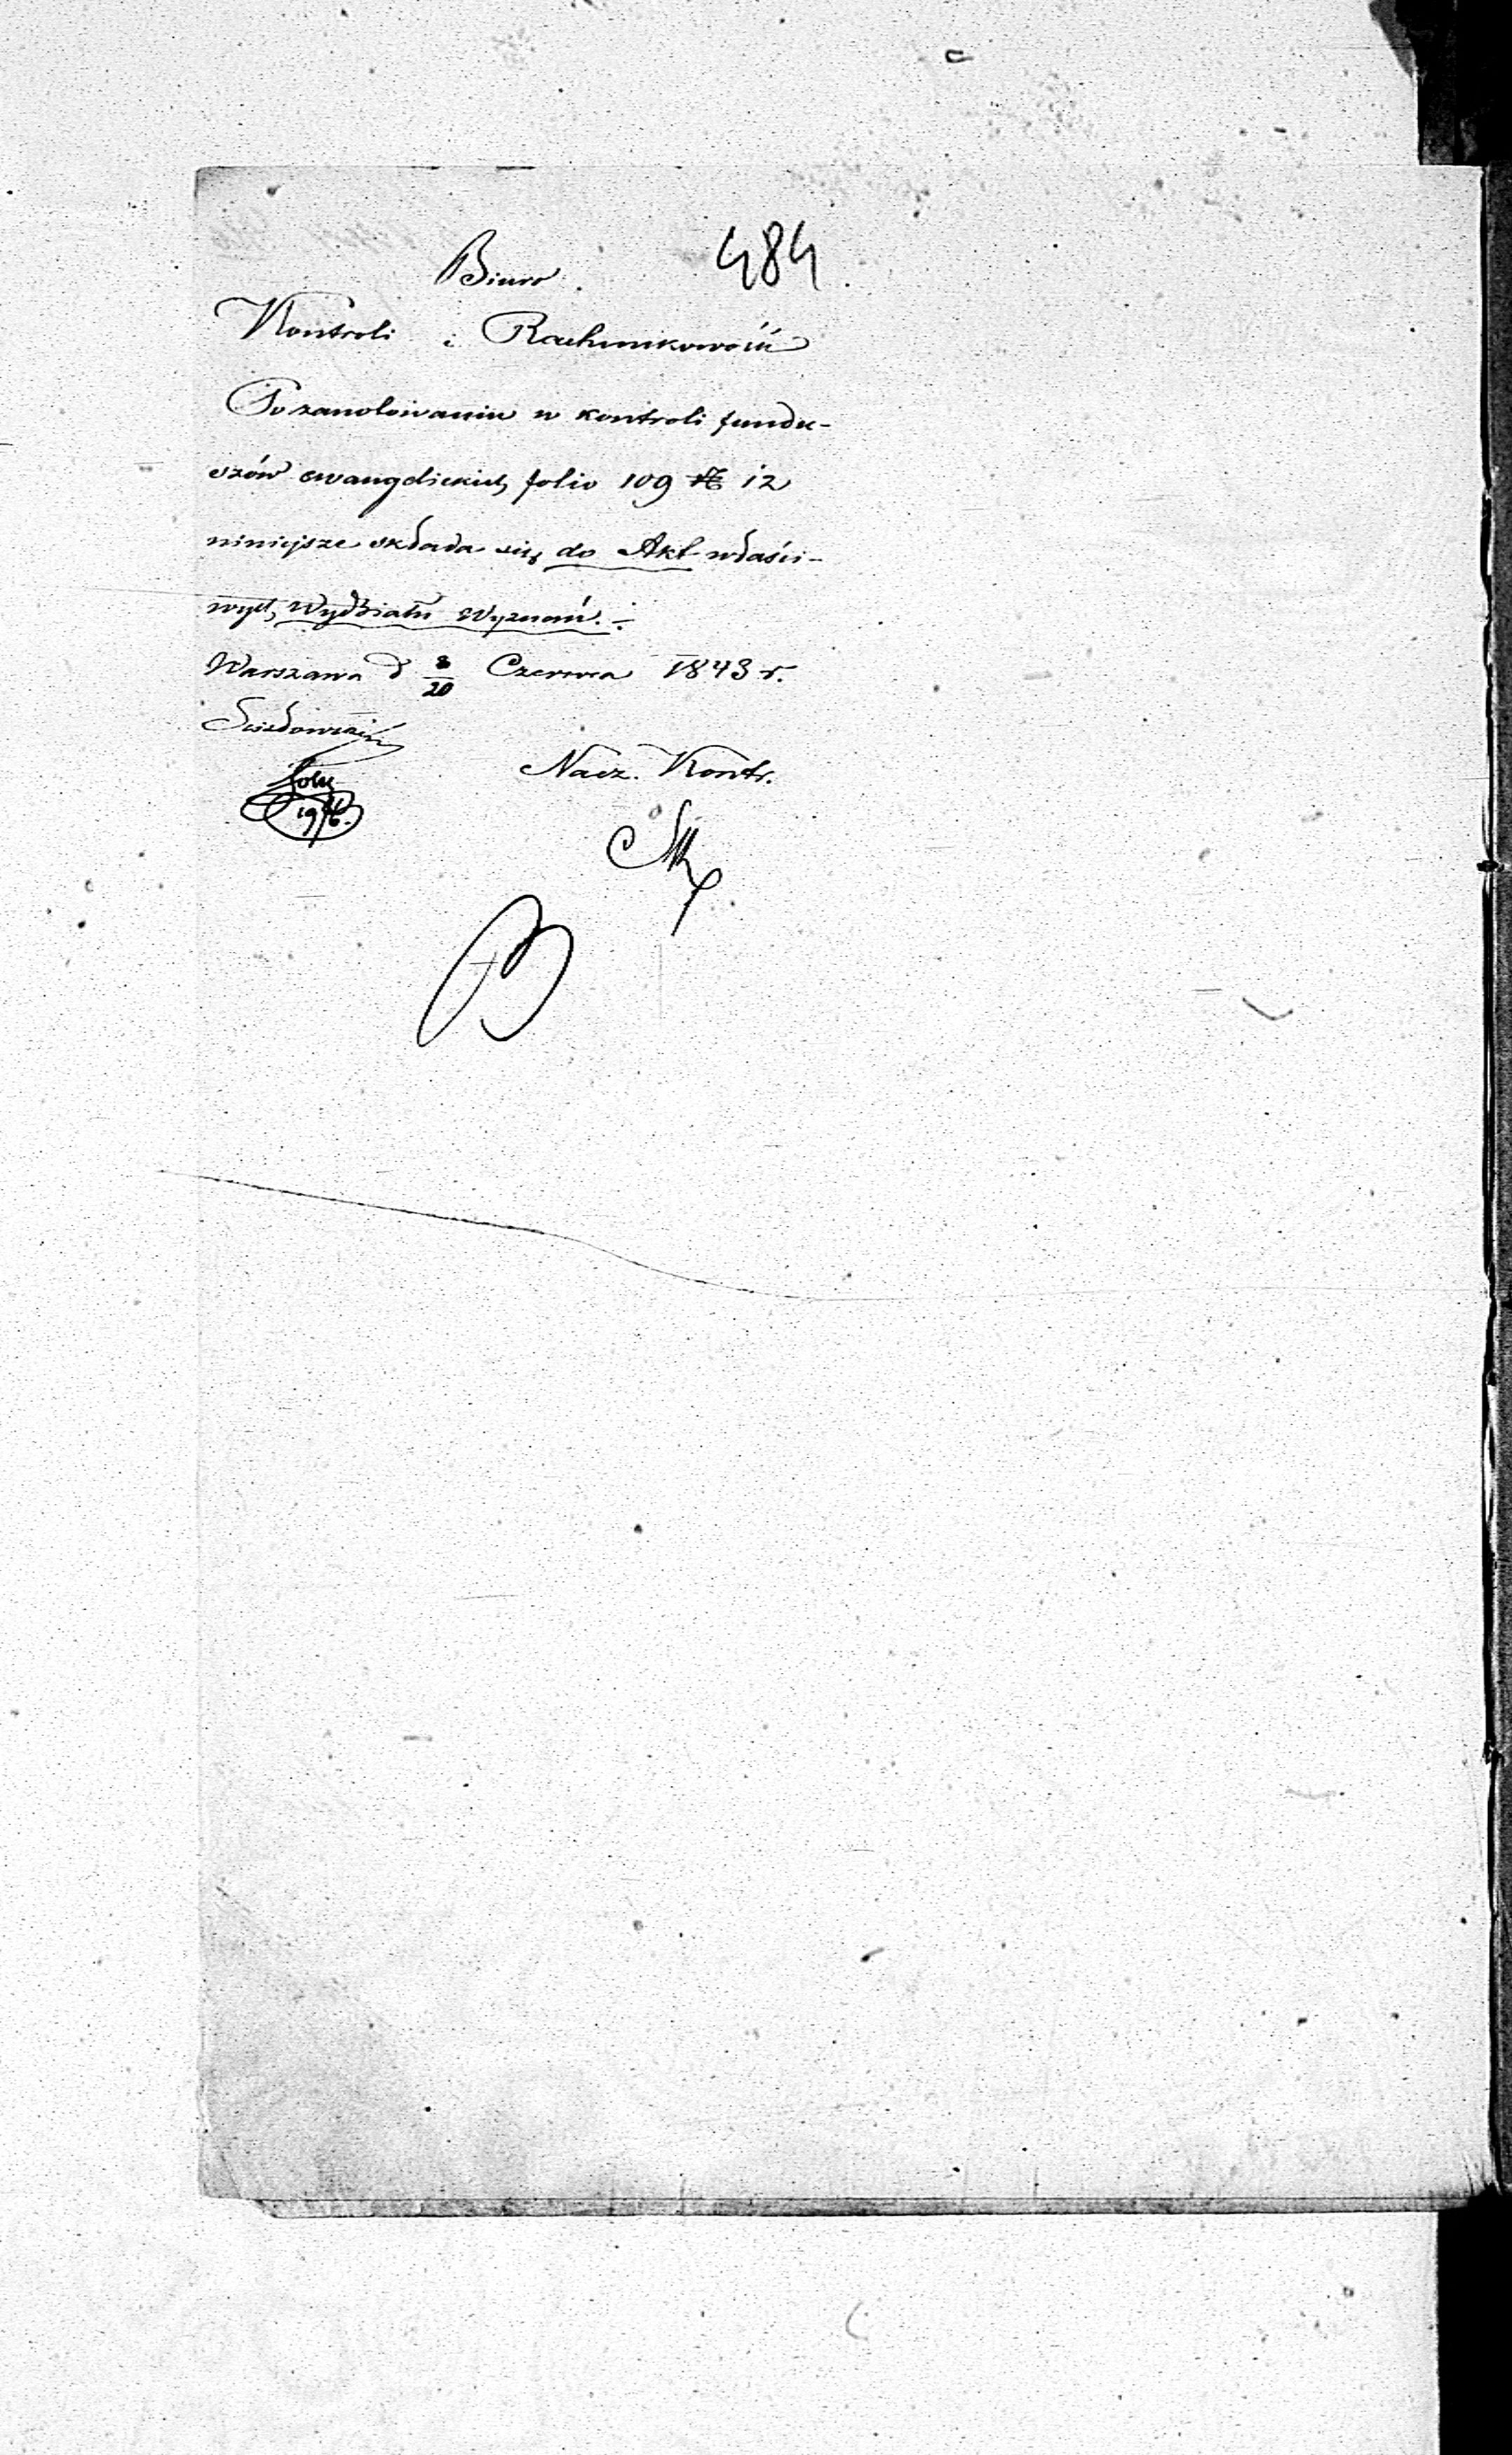 484
Biuro.
Kontroli i Rachunkowości
Po zanotowaniu w kontroli fundu-
szów ewangelickich folio 109 № 12
niniejsze składa się do Akt właści-
wych Wydziału Wyznań.
Warszawa d 8/20 Czerwca 1843 r.
Nacz. Kontr.